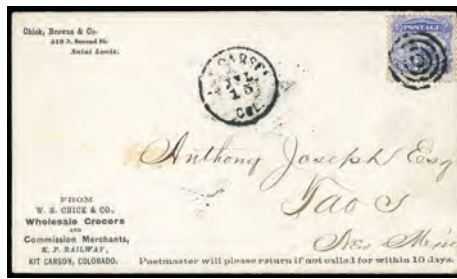 Chick, Browne & Co.
519 N. Second St.
Saint Louis.
POSTAGE
CARSON
JUL
15
COL.
Anthony Joseph Esq
Taos
New Mexic
FROM
W. H. CHICK & CO.,
Wholesale Grocers
AND
Commission Merchants,
K. P. RAILWAY,
KIT CARSON, COLORADO.
Postmaster will please return if not called for within 10 days.